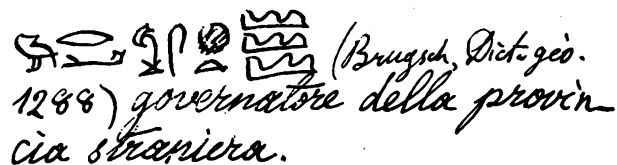 (Brugsch, Dict. géo.
1288) governatore della provin-
cia straniera.